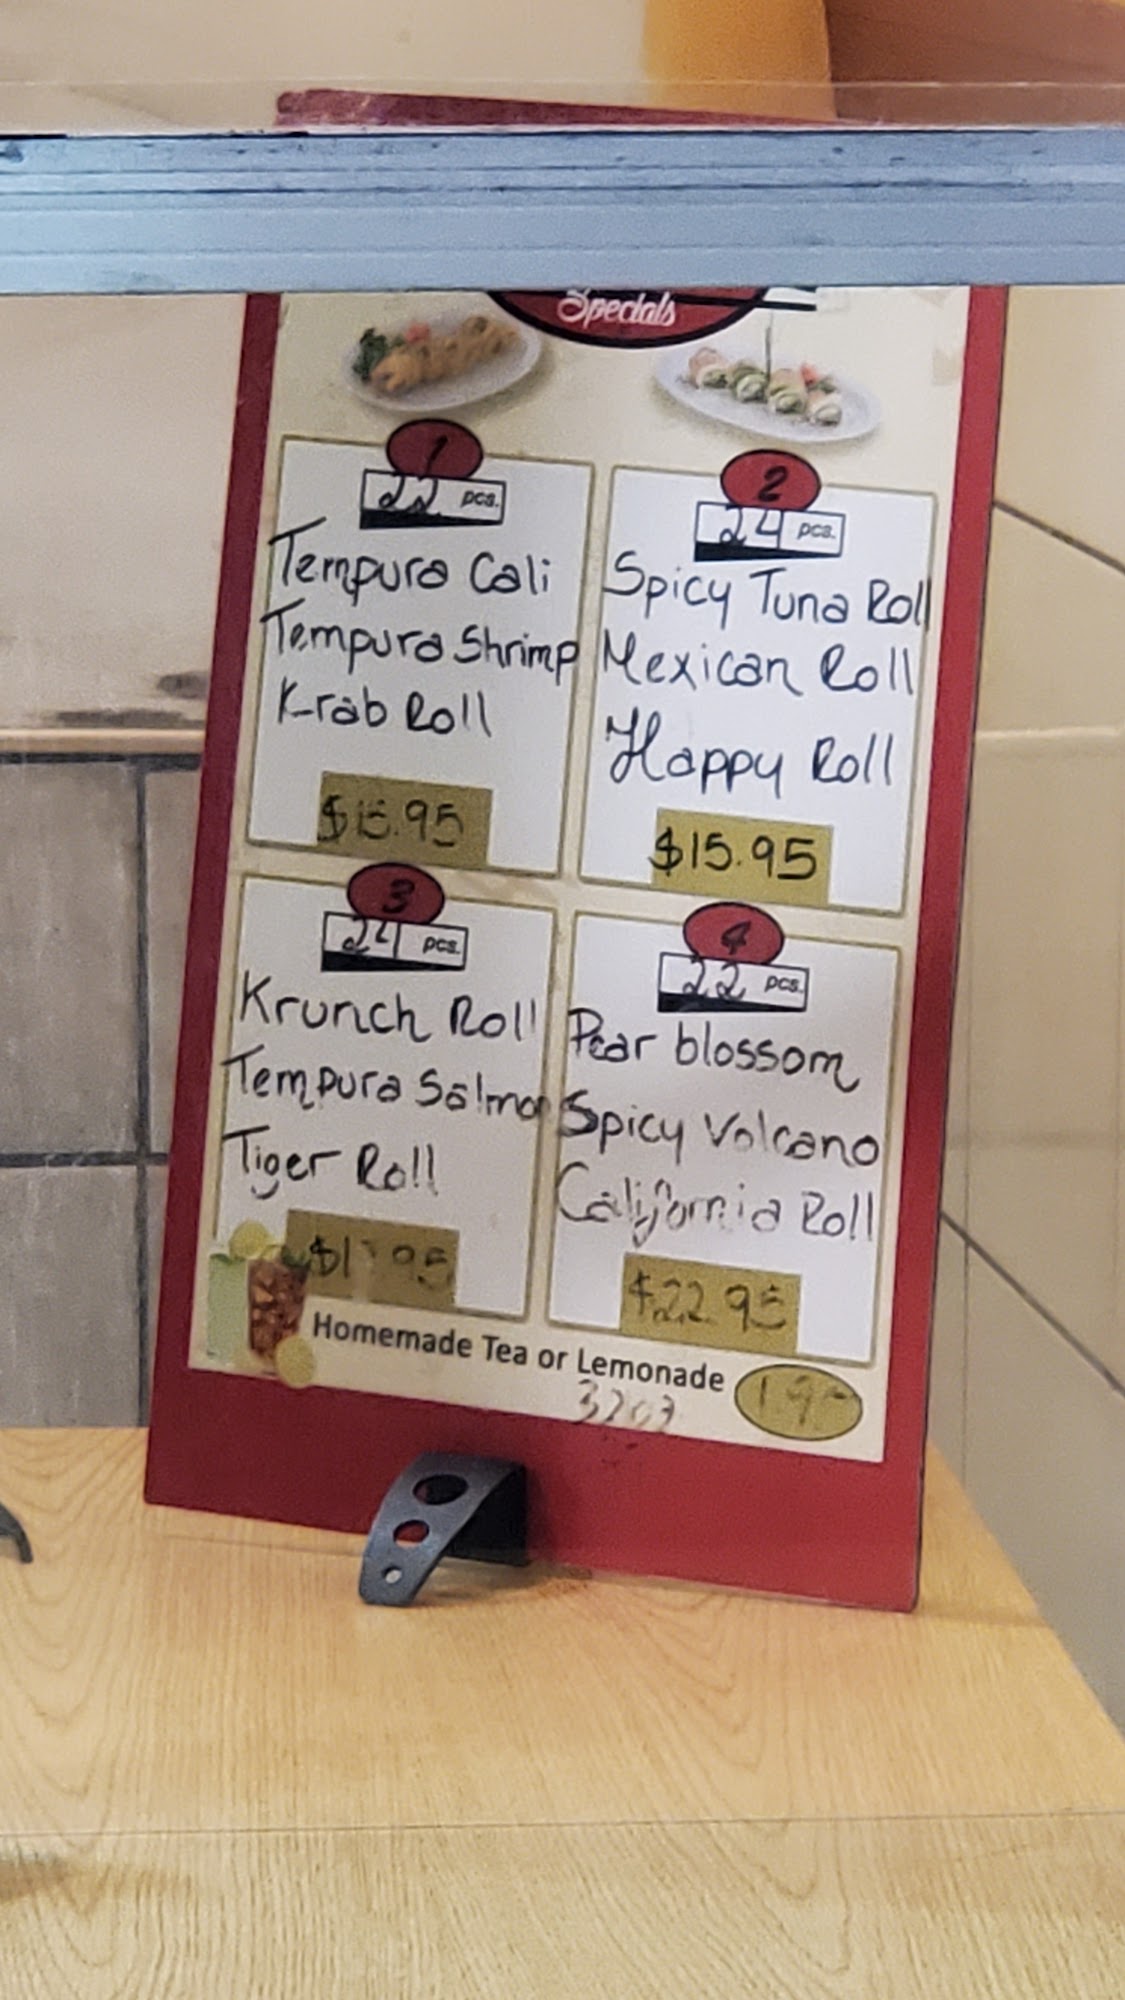 Specials
1
22 pcs.
Tempura Cali
Tempura Shrimp
Krab Roll
$15.95
2
24 pcs.
Spicy Tuna Roll
Mexican Roll
Happy Roll
$15.95
3
24 pcs.
Krunch Roll
Tempura Salmon
Tiger Roll
4
22 pcs.
Pear blossom
Spicy Volcano
California Roll
$22.95
Homemade Tea or Lemonade